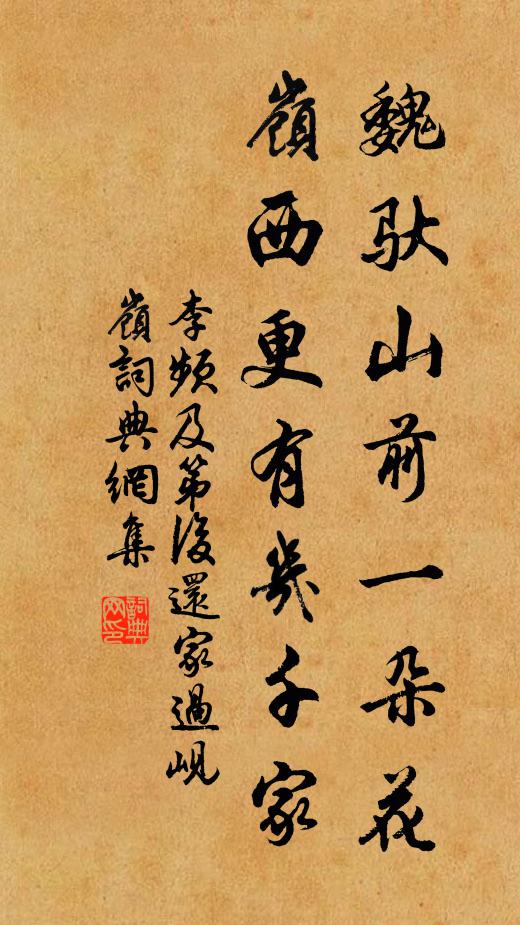 魏馱山前一朵花
嶺西更有幾千家
李頻及第後還家過峴
嶺詞典網集
詞典
网印